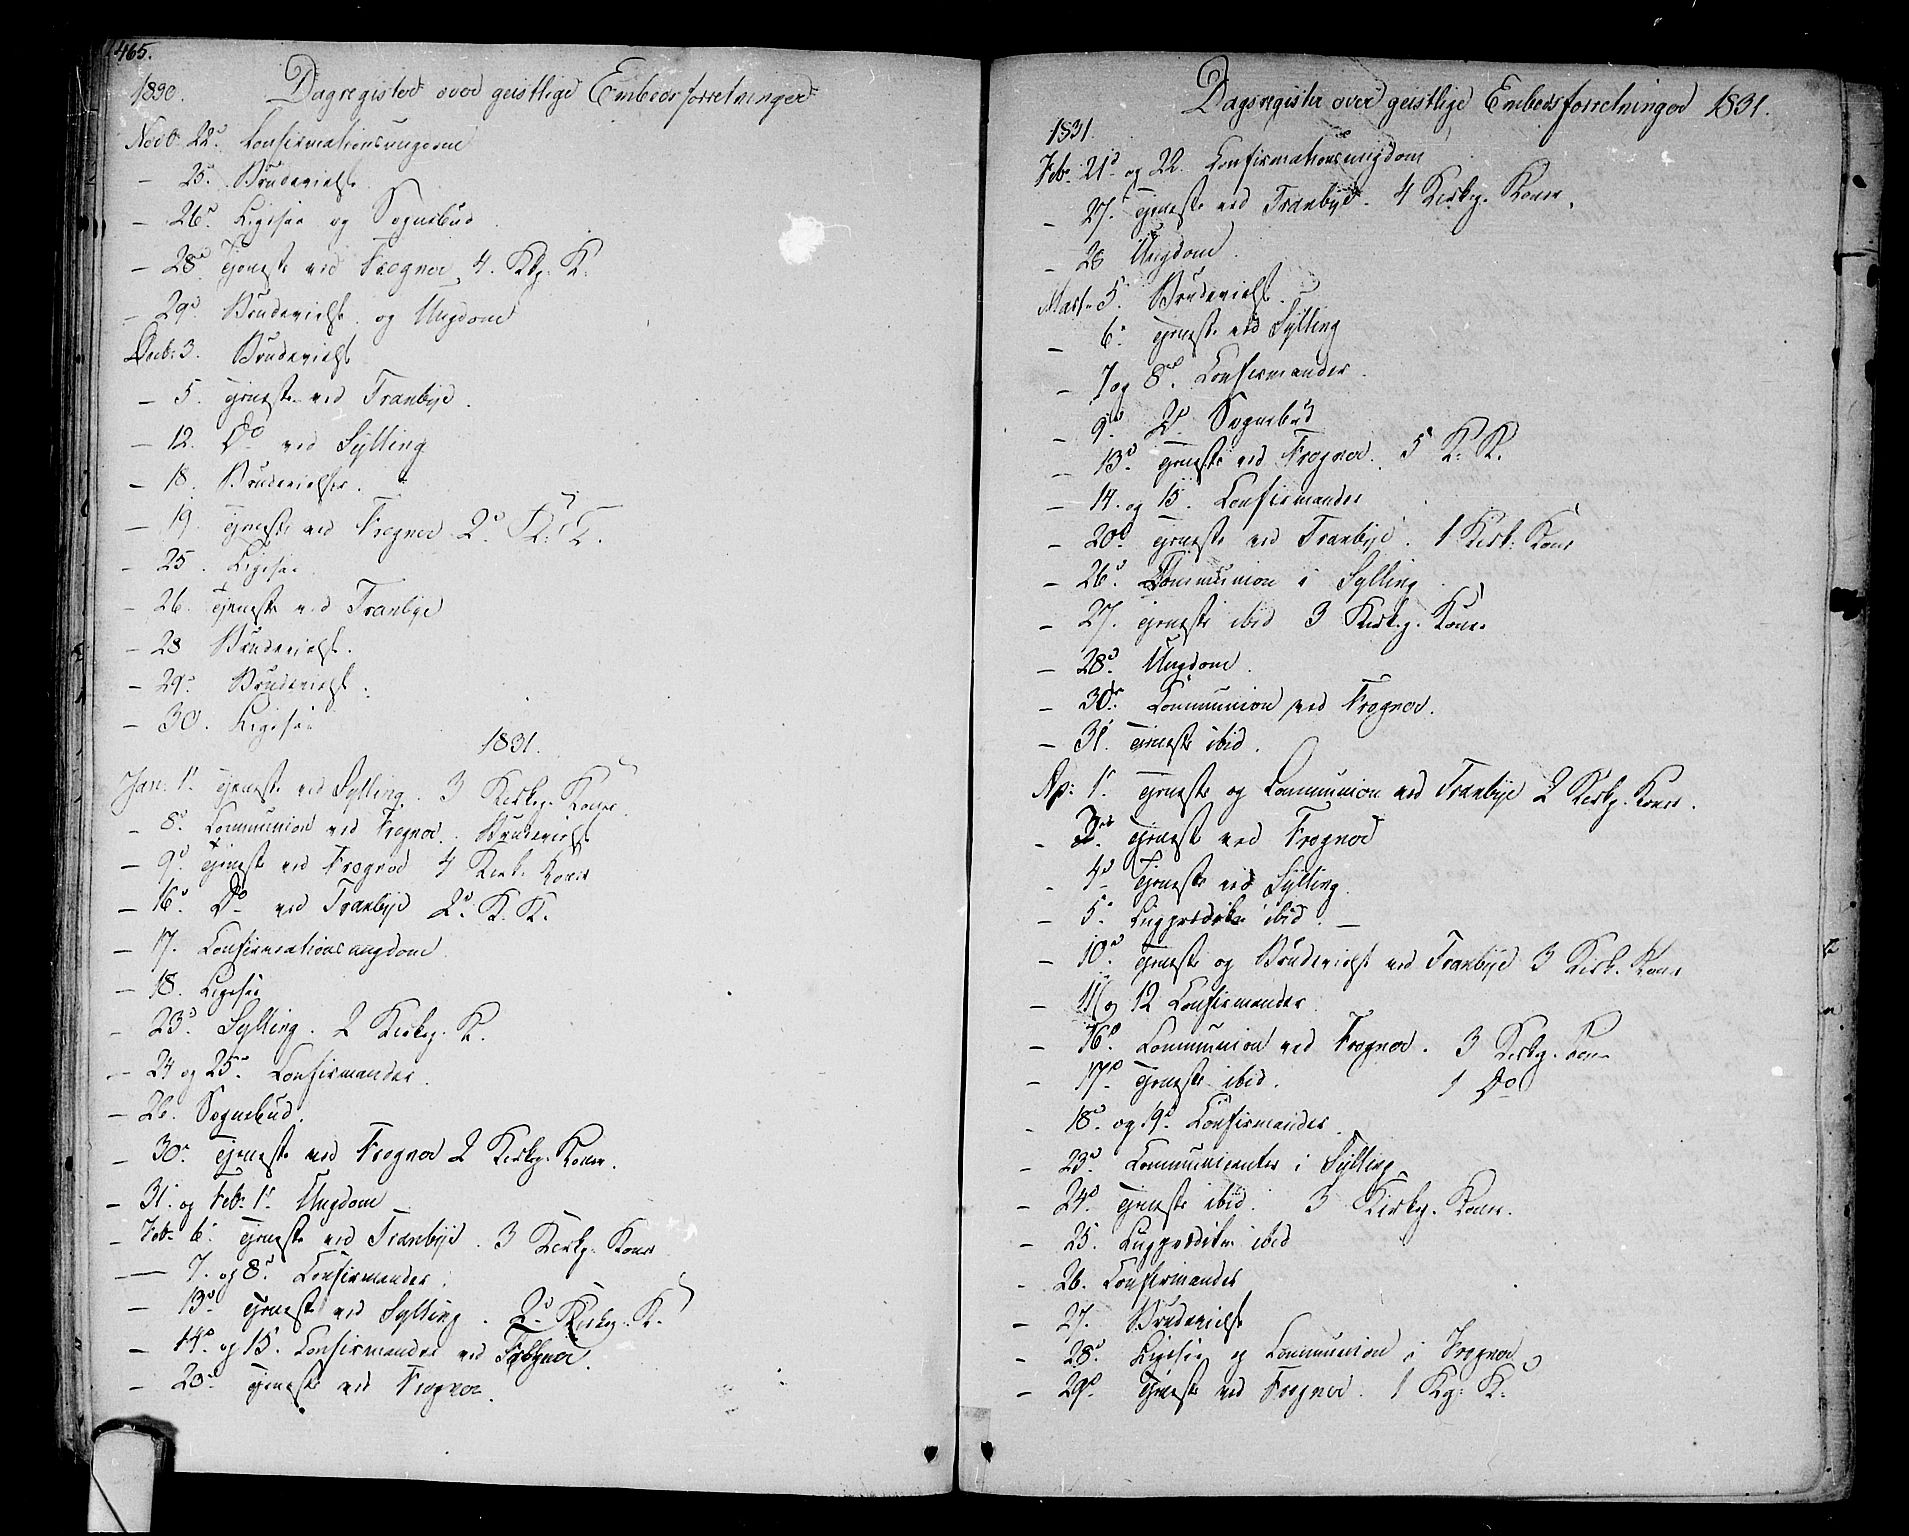 465.
1830. Dagregister over geistlige Embedsforretninger
Novb. 22. Confirmationsungdom
— 25. Brudevielse
— 26. Ligfær og Sognebud
— 28. Tjeneste ved Frogner 4. Kg. K.
— 29. Brudevielse og Ungdom
Decb. 3. Brudevielse
— 5. Tjeneste ved Tranbye.
— 12. Do ved Sylling
— 18. Brudevielser.
— 19. Tjeneste ved Frogner 2. K. K.
— 25. Ligfær
— 26. Tjeneste ved Tranbye
— 28 Brudevielse.
— 29. Brudevielse.
— 30. Ligfær
1831.
Jan. 1. Tjeneste ved Sylling. 3 Kirkeg. Koner
— 8. Communion ved Frogner. Brudevielse
— 9. Tjeneste ved Frogner 4 Kirk. Koner
— 16. Do ved Tranbye 2. K. K.
— 17. Confirmationsungdom
— 18. Ligfær
— 23. Sylling. 2 Kirkeg. K.
— 24 og 25. Confirmander.
— 26. Sognebud.
— 30. Tjeneste ved Frogner 2 Kirkeg. Koner.
— 31. og Feb. 1. Ungdom
— Feb. 6. Tjeneste ved Tranbye. 3 Kirkg. Koner
— 7. og 8. Confirmander.
— 13. Tjeneste ved Sylling. 2. Kirkeg. K.
— 14. og 15. Confirmander ved Frogner.
— 23. Tjeneste ved Frogner.
Dagsregister over geistlige Embedsforretninger 1831.
1831.
Feb. 21. og 22. Confirmationsungdom
— 27. Tjeneste ved Tranbye. 4 Kirkg. Koner.
— 28 Ungdom.
Mart. 5. Brudevielse.
— 6. Tjeneste ved Sylling
— 7 og 8. Confirmander.
— 9. 2 Sognebud
— 13. Tjeneste ved Frogner. 5 K. K.
— 14. og 15. Confirmander
— 20. Tjeneste ved Tranbye. 1 Kirk. Kone
— 26. Communion i Sylling.
— 27. Tjeneste ibid 3 Kirkg. Koner
— 28. Ungdom.
— 30. Communion ved Frogner.
— 31. Tjeneste ibid.
Ap: 1. Tjeneste og Communion ved Tranbye 2 Kirkg. Koner.
— 3. Tjeneste ved Frogner
— 4. Tjeneste ved Sylling.
— 5. ibid. —
— 10. Tjeneste og Brudevielse ved Tranbye 3 Kirk. Koner
— 11 og 12 Confirmander
— 16. Communion ved Frogner. 3 Kirkg. Kon
— 17. Tjeneste ibid. 1 Do
— 18. og 19. Confirmander
— 23. Communicanter i Sylling
— 24. Tjeneste ibid. 3 Kirkg. Koner.
— 25. ibid
— 26. Confirmander
— 27. Brudevielse
— 28. Ligfær og Communion i Frogner
— 29. Tjeneste ved Frogner. 1 Kg. K.